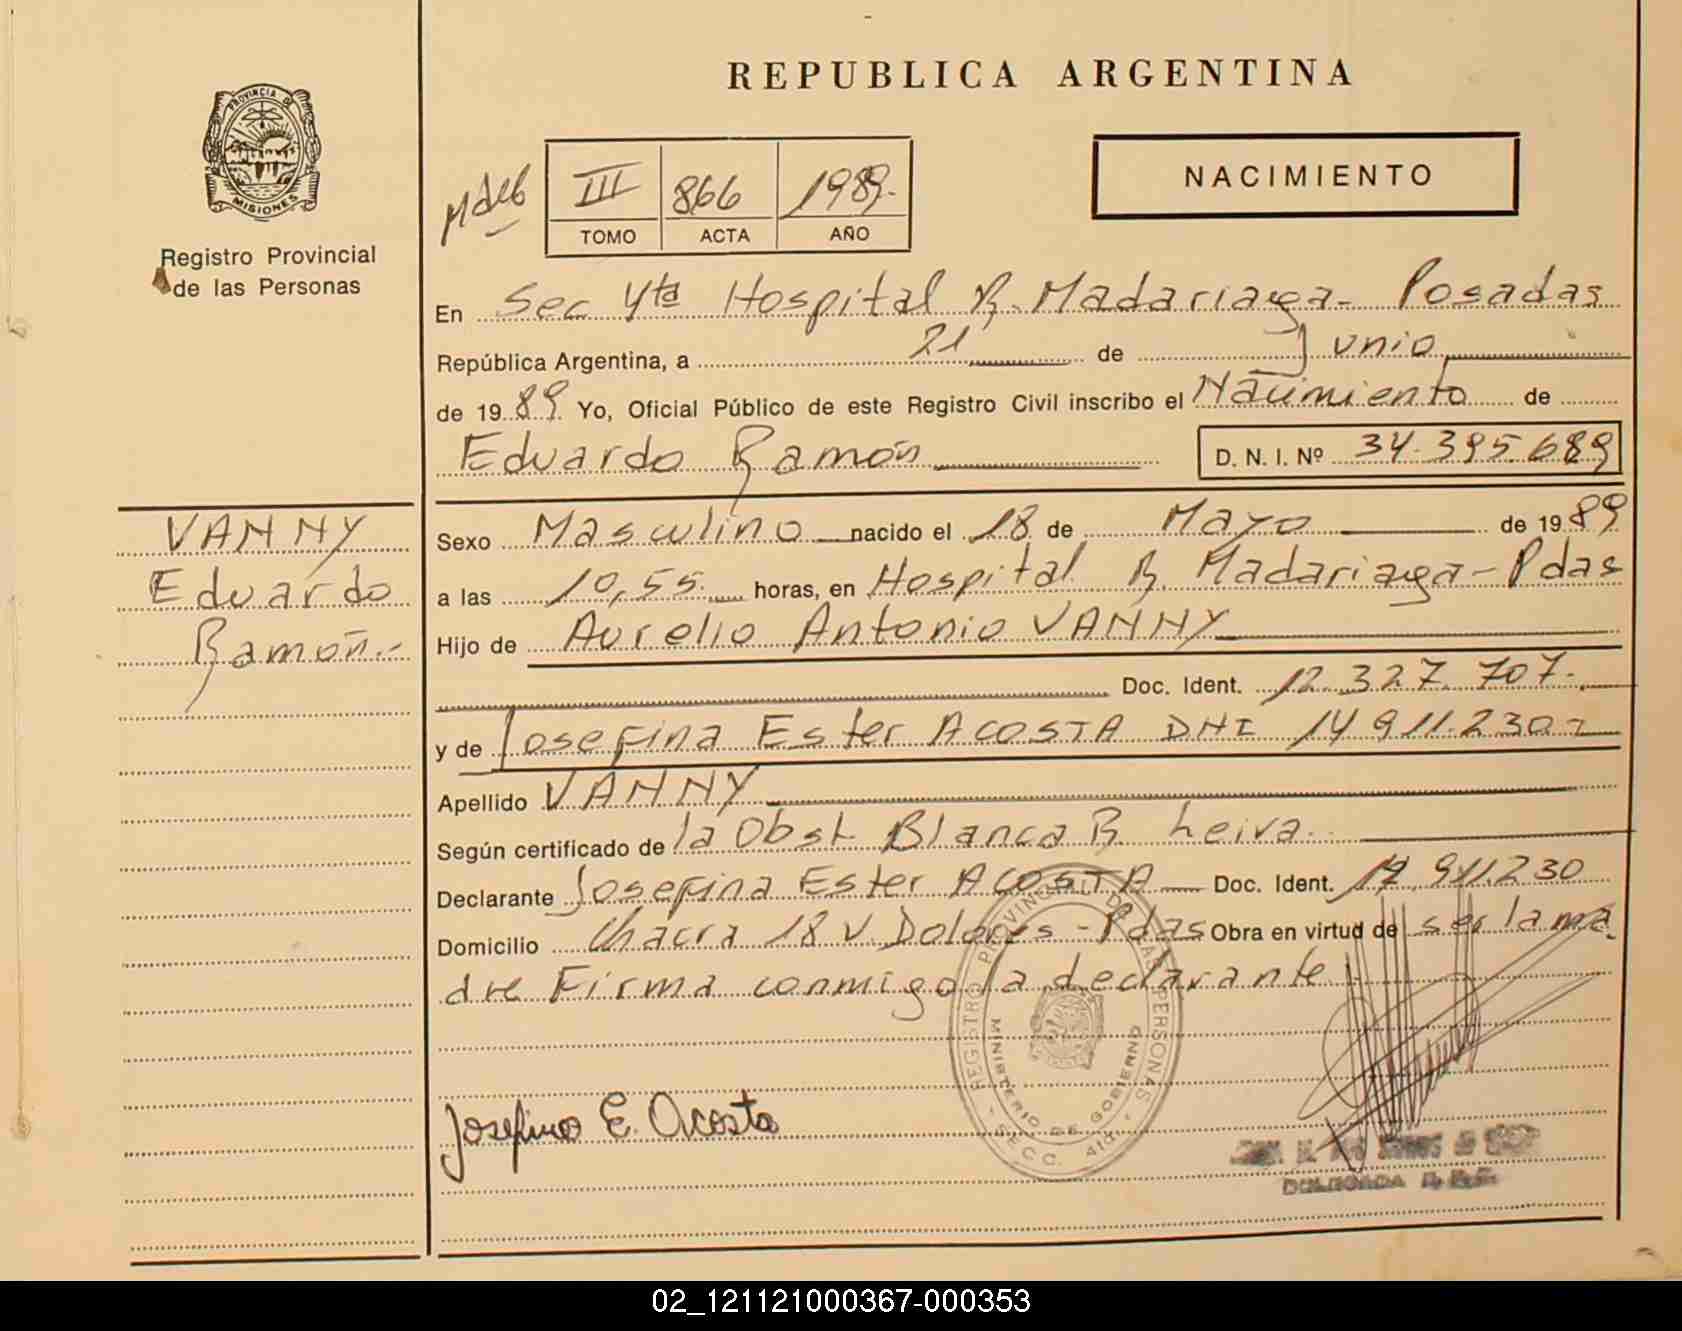 REPUBLICA ARGENTINA
PROVINCIA DE
MISIONES
Registro Provincial
de las Personas
III 866 1989.-
TOMO ACTA AÑO
NACIMIENTO
En Sec 4ta Hospital R. Madariaga - Posadas
República Argentina, a 21 de Junio
de 1989 Yo, Oficial Público de este Registro Civil inscribo el Nacimiento de
Eduardo Ramón
D. N. I. Nº 34.395.689
VANNY
Eduardo
Ramón.-
Sexo Masculino nacido el 18 de Mayo de 1989
a las 10,55 horas, en Hospital R. Madariaga - Pdas
Hijo de Aurelio Antonio VANNY
Doc. Ident. 12.327.707.-
y de Josefina Ester ACOSTA DNI 14.911.230 -
Apellido VANNY
Según certificado de la Obst Blanca R. Leiva
Declarante Josefina Ester ACOSTA Doc. Ident. 14.911.230
Domicilio Chacra 18 V. Dolores - Pdas Obra en virtud de ser la ma
dre Firma conmigo la declarante
REGISTRO PROVINCIAL DE LAS PERSONAS
MINISTERIO DE GOBIERNO
- SECC. 4ta. -
Josefina E. Acosta
DELEGADA
02_121121000367-000353